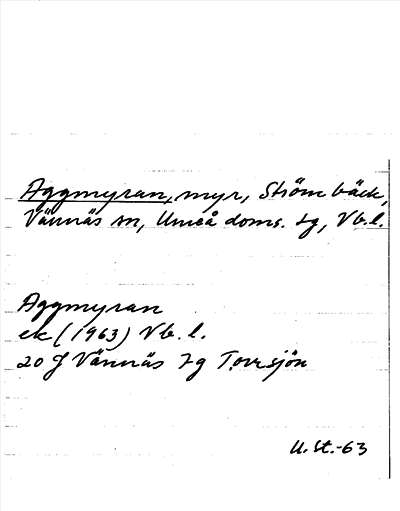 Aggmyran, myr, Strömbäck,
Vännäs sn, Umeå doms. tg, Vb.l.
Aggmyran
ek (1963) Vb. l.
20 J Vännäs
U.St.-63